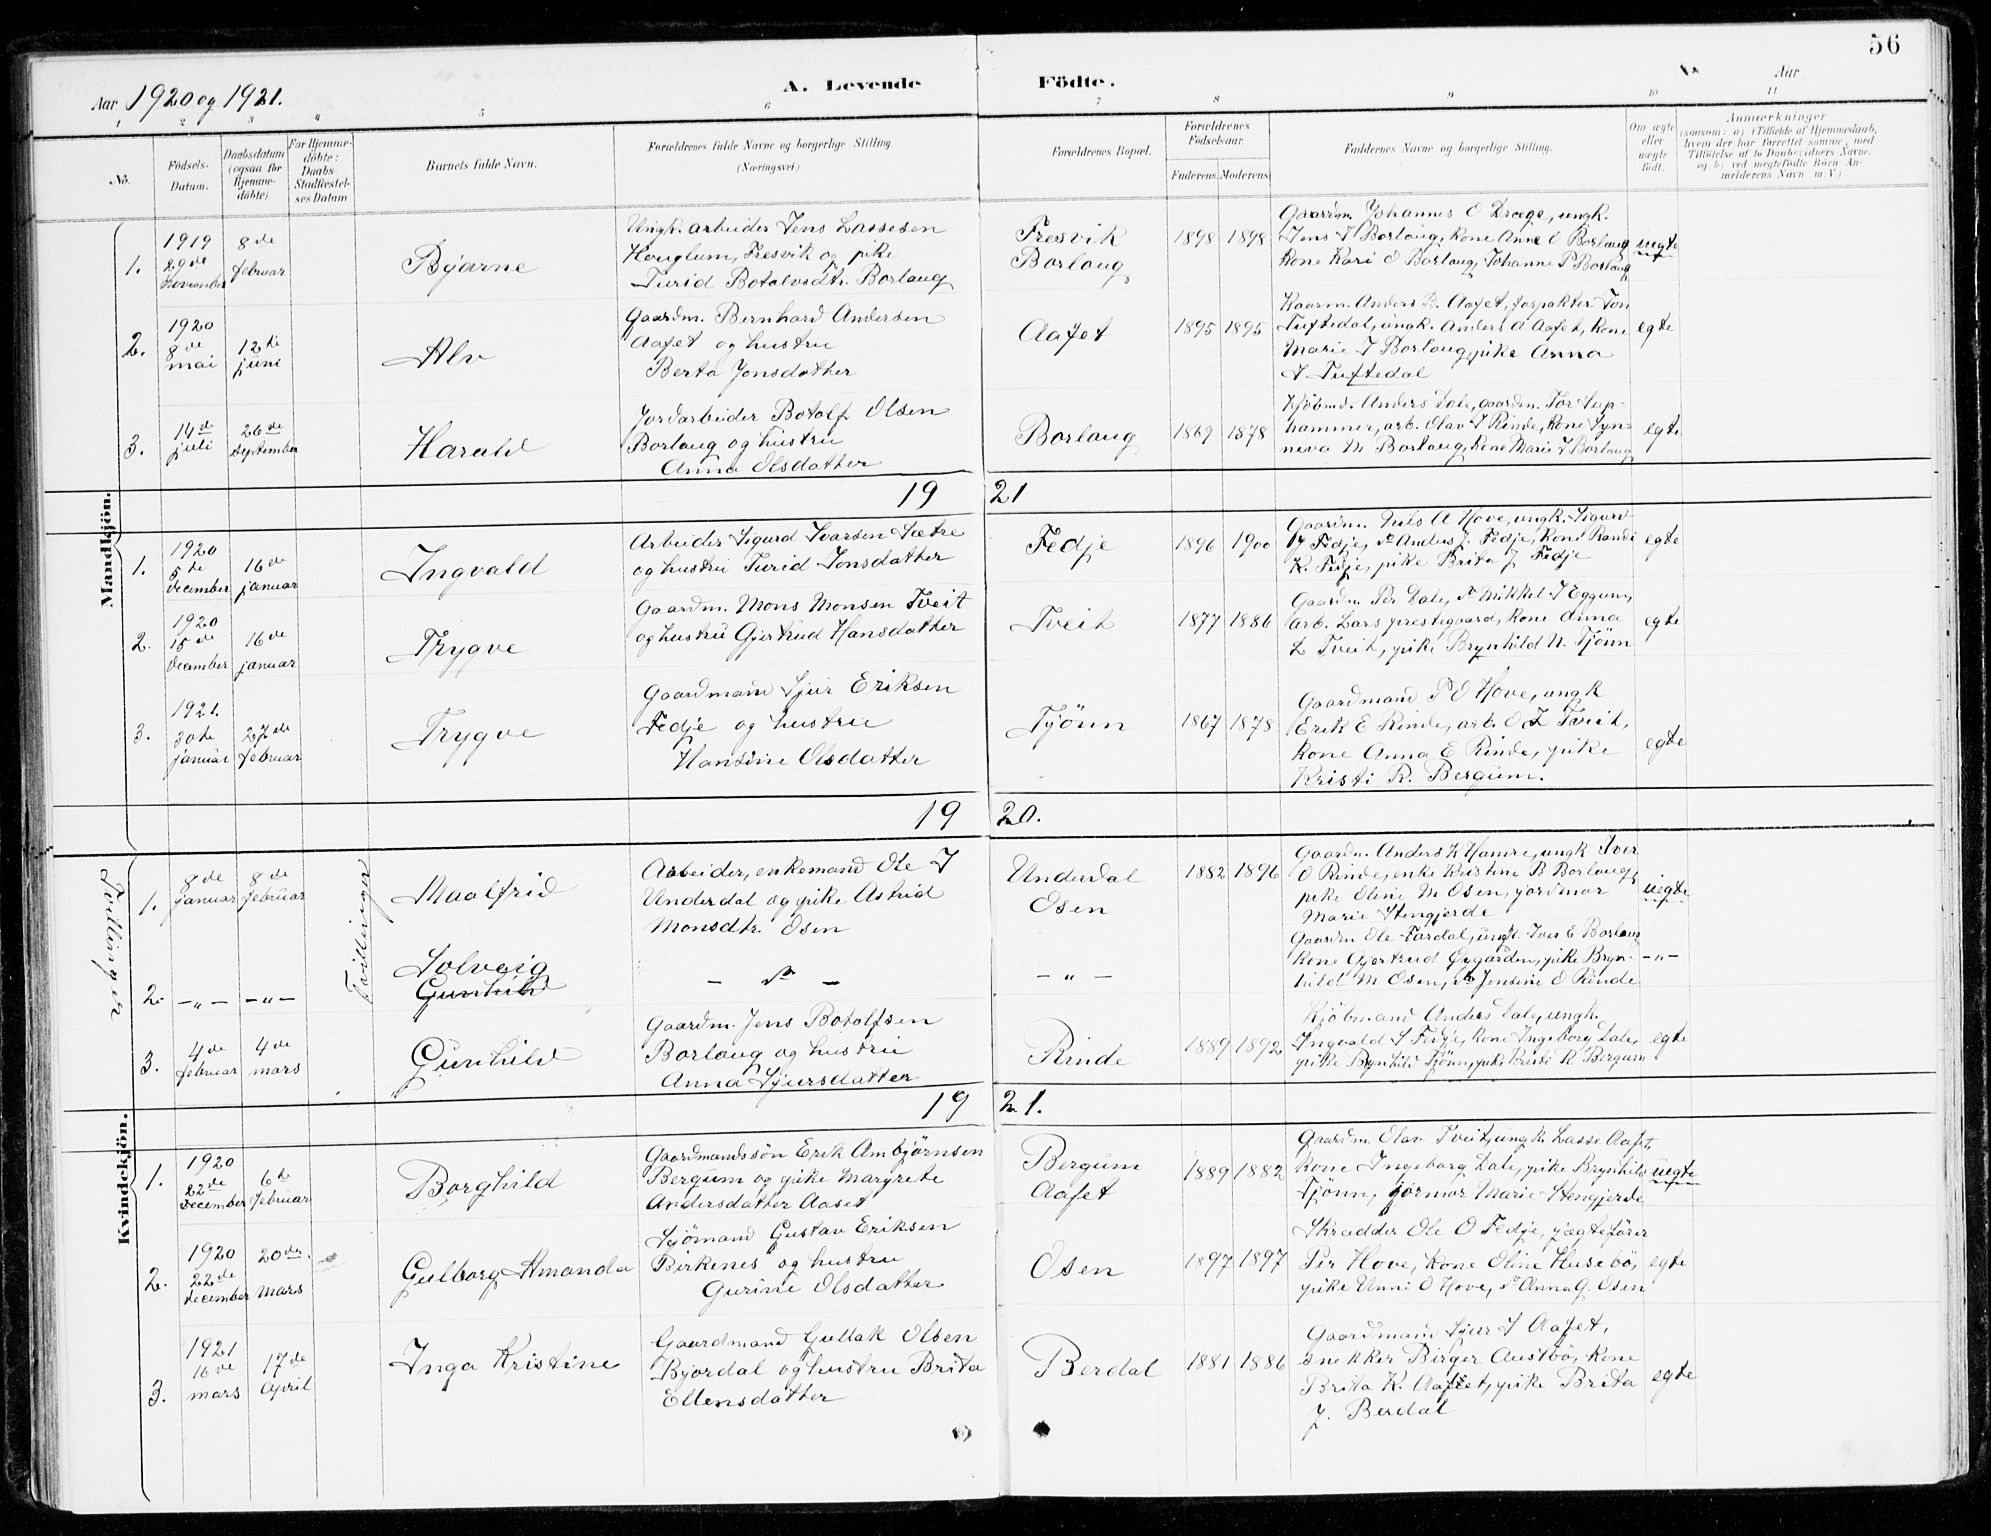 56
Aar 1920 og 1921.
A. Levende
Födte.
Aar
1 2 3 4 5 6 7 8 9 10 11
No.
Födsels-
Datum.
Daabsdatum
(ogsaa for
Hjemme-
döbte).
For Hjemme-
döbte:
Daabs-
Stadfæstel-
ses Datum
Barnets fulde Navn.
Forældrenes fulde Navne og borgerlige Stilling
(Næringsvei.)
Forældrenes Bopæl.
Forældrenes
Födselsaar.
Faderens.
Moderens.
Faddernes Navne og borgerlige Stilling.
Om ægte
eller
uægte
födt.
Anmærkninger
(saasom: a) i Tilfælde af Hjemmedaab,
hvem der har forrettet samme, med
Tilföielse af to Daabsvidners Navne,
og b) ved uægtefödte Börn An-
melderens Navn m. V.)
Mandkjön.
1.
1919
29de
November
8de
februar
Bjarne
Ungk. arbeider Jens Lassesen
Houglum, Fresvik og pike
Turid Botolvsdtr. Borlaug
Fresvik
Borlaug
1898 1898
Gaardm. Johannes O Dræge, ungk.
Jens J Borlaug, kone Anne O Borlaug
kone Kari O Borlaug, Johanne P Borlaug
uegte
2.
1920
8de
mai
12te
juni
Alv
Gaardm. Bernhard Andersen
Aafet og hustru
Berta Jonsdatter
Aafet
1895 1895
Kaarm. Anders B. Aafet, forpakter Jon
Tuftedal, ungk. Anders A Aafet, kone
Marie J Borlaug, pike Anna
J Tuftedal
egte
3.
14de
juli
26de
september
Harald
Jordarbeider Botolf Olsen
Borlaug og hustru
Anna Olsdatter
Borlaug
1869 1878
Kjöbmd. Anders Dale, gaardm. Tor Lup-
hammer, arb. Olav J Rinde, kone Syn-
neva M Borlaug, kone Marie J Borlaug
egte
19 21
1.
1920
5de
december
16de
januar
Ingvald
Arbeider Sigurd Ivarsen Sætre
og hustru Turid Jonsdatter
Fedje
1896 1900
Gaardm. Nils A Hove, ungk. Sigurd
J Fedje, do Anders J. Fedje, kone Randi
K. Fedje, pike Brita J Fedje
egte
2.
1920
15de
december
16de
januar
Trygve
Gaardm. Mons Monsen Tveit
og hustru Gjertrud Hansdatter
Tveit
1877 1886
Gaardm. Per Dale, do Mikkel J Eggum,
arb. Lars prestegaard, kone Anna
L Tveit, pike Brynhild N. Tjönn
egte
3.
1921.
30te
januar
27de
februar
Trygve
Gaardmand Sjur Eriksen
Fedje og hustru
Hansine Olsdatter
Tjönn
1867 1878
Gaardmand P O Hove, ungk
Erik E Rinde, arb. O L Tveit,
kone Anna E Rinde, pike
Kristi R. Bergum.
egte
19 20.
Tvillinger
Kvindekjön.
1.
8de
januar
8de
februar
Tvillinger
Maalfrid
Arbeider, enkemand Ole J
Underdal og pike Astrid
Monsdtr. Osen
Underdal
Osen
1882 1896
Gaardm. Anders K Hamre, ungk Iver
O Rinde, enke Kristine B Borlaug,
pike Oline M Osen, jordmor
Marie Stengjerde
uegte
2.
–„–
–„–
Solveig
Gunhild
– do –
– „ –
Gaardm Ole Fardal, ungk. Iver E Borlaug
kone Gjertrud Øygården, pike Bryn-
hild M Osen, do Jensine O Rinde
–„–
3.
4de
februar
4de
mars
Gunhild
Gaardm. Jens Botolfsen
Borlaug og hustru
Anna Sjursdatter
Rinde
1889 1892
Kjöbmand Anders Dale, ungk.
Ingvald S Fedje, kone Ingeborg Dale,
pike Brynhild Tjönn, pike Kristi R Bergum
egte
19 21.
1.
1920
22de
december
6te
februar
Borghild
Gaardmandssön Erik Ambjörnsen
Bergum og pike Margrete
Andersdatter Aaset
Bergum
Aafet
1889 1882
Gaardm. Olav Tveit, ungk. Lasse Aafet,
kone Ingeborg Dale, pike Brynhild
Tjönn, jormor Marie Stengjerde
uegte
2.
1920
22de
december
20de.
mars
Gulborg Amanda
Sjömand Gustav Eriksen
Birkenes og hustru
Gurine Olsdatter
Osen
1897 1897
Skrædder Ole O Fedje, jægtefører
Per Hove, kone Oline Husebö,
pike Unni O Hove, do Anna G. Osen
egte
3.
1921
16de
mars
17de
April
Inga Kristine
Gaardmand Gullak Olsen
Bjordal og hustru Brita
Ellensdatter
Berdal
1881 1886
Gaardmand Sjur S Aafet,
snekker Birger Austbö, kone
Brita K. Aafet, pike Brita
J. Berdal
egte